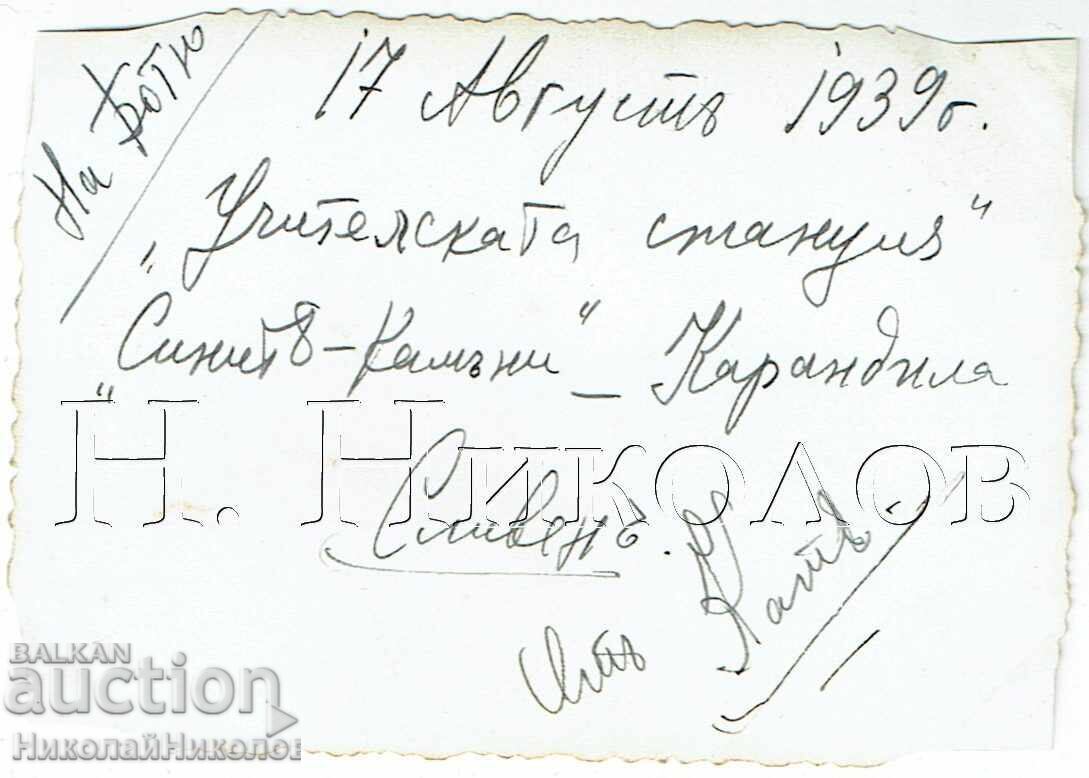 На Ботю
17 Августъ 1939 г.
„Учителската станция"
„Синитѣ-Камъни" – Карандила
Н. Николов
Сливенъ.
Отъ
BALKAN
auction
НиколайНиколов